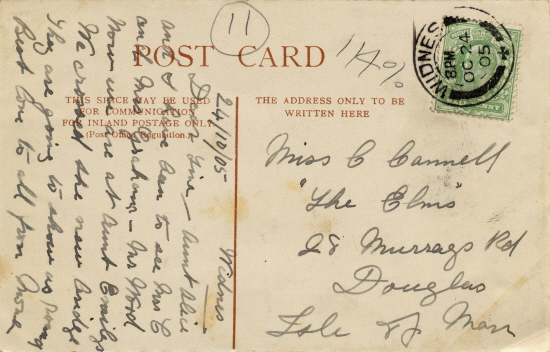 11
POST CARD
THIS SPACE MAY BE USED
FOR COMMUNICATION
FOR INLAND POSTAGE ONLY
(Post Office Regulation.)
THE ADDRESS ONLY TO BE
WRITTEN HERE
WIDNES
8PM
OC 24
05
Widnes
24/10/05
Dear - Aunt Alice
and I have been to see Mrs C
and Mrs Graham - Mrs Word
Now we are at Aunt Emilys
We crossed the new bridge
They are going to show us
Best love to all from
Miss C Cannell
"The Elms"
28 Murrays Rd
Douglas
Isle of Man